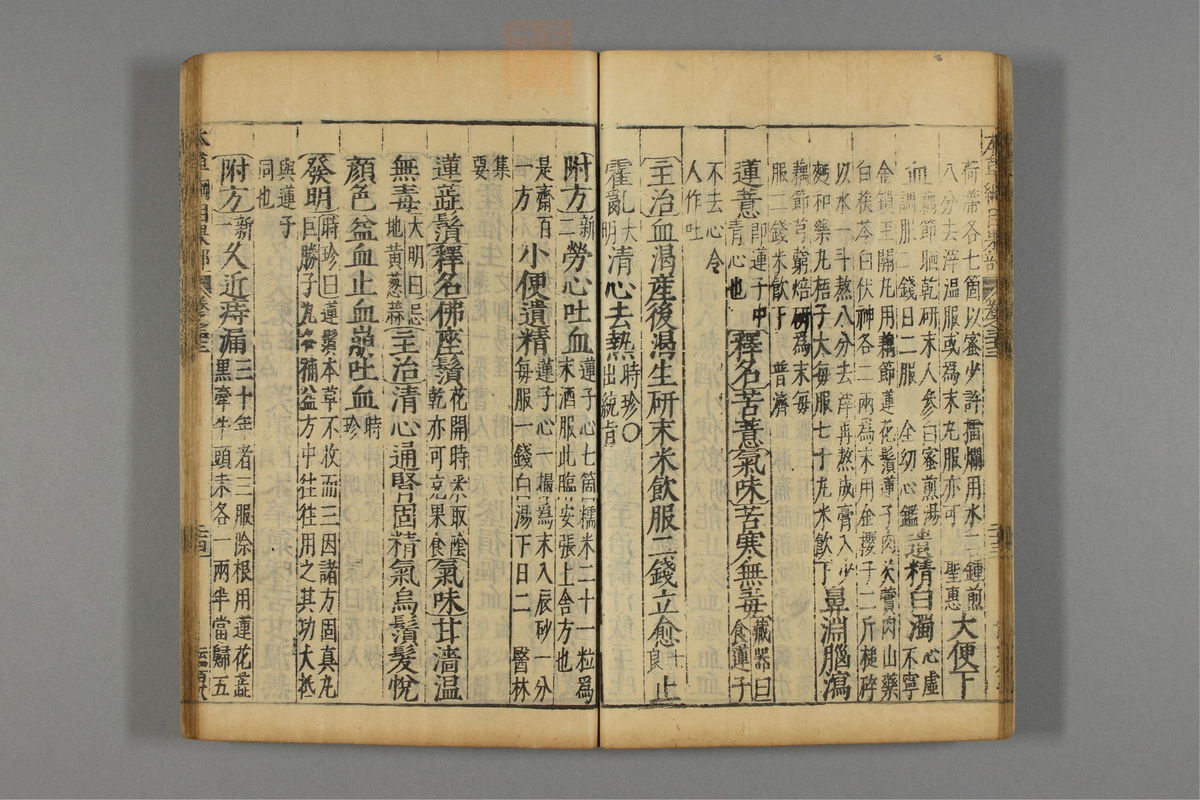 荷蒂各七箇以蜜少許擂爛用水二鍾煎
八分去滓溫服或為末丸服亦可 聖惠 大便下
血 藕節晒乾研末人參白蜜煎湯
調服二錢日二服 全幼心鑑 遺精白濁 心虛不寧
金鎖玉關丸用藕節蓮花鬚蓮子肉芡實肉山藥
白茯苓白茯神各二兩為末用金櫻子二斤槌碎
以水一斗熬八分去滓再熬成膏入少
麪和藥丸梧子大每服七十丸米飲下 鼻淵腦瀉
藕節芎藭焙研為末每
服二錢米飲下 普濟
蓮薏 即蓮子中青心也 釋名 苦薏 氣味 苦寒無毒 藏器曰食蓮子
不去心令
人作吐
主治 血渴產後渴生研末米飲服二錢立愈 士良 止
霍亂 大明 清心去熱 時珍○出統旨
附方 新二 勞心吐血 蓮子心七箇糯米二十一粒為
末酒服此臨安張上舍方也
是齋百一方 小便遺精 蓮子心一撮為末入辰砂一分
每服一錢白湯下日二 醫林
集要
蓮蘂鬚 釋名 佛座鬚 花開時采取陰乾亦可充果食 氣味 甘濇溫
無毒 大明曰忌地黃葱蒜 主治 清心通腎固精氣烏鬚髮悅
顏色益血止血崩吐血 時珍
發明 時珍曰蓮鬚本草不收而三因諸方固真丸
巨勝子丸各補益方中往往用之其功大抵
與蓮子
同也
附方 新一 久近痔漏 三十年者三服除根用蓮花蘂
黑牽牛頭末各一兩半當歸五